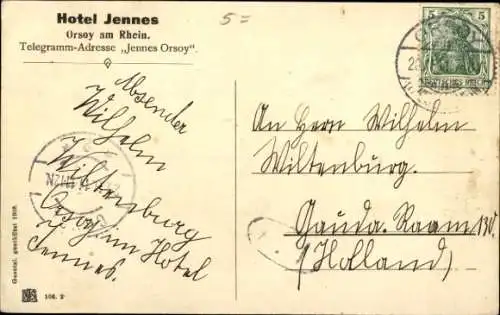 Hotel Jennes
Orsoy am Rhein.
Telegramm-Adresse „Jennes Orsoy“.
5=
5 5
DEUTSCHES REICH
Absender
Wilhelm
Wiltenburg
Orsoy im Hotel
Jennes.
An Herr Wilhelm
Wiltenburg.
Gauda. Raam 130.
Holland)
Gesetzl. geschützt
106. 2